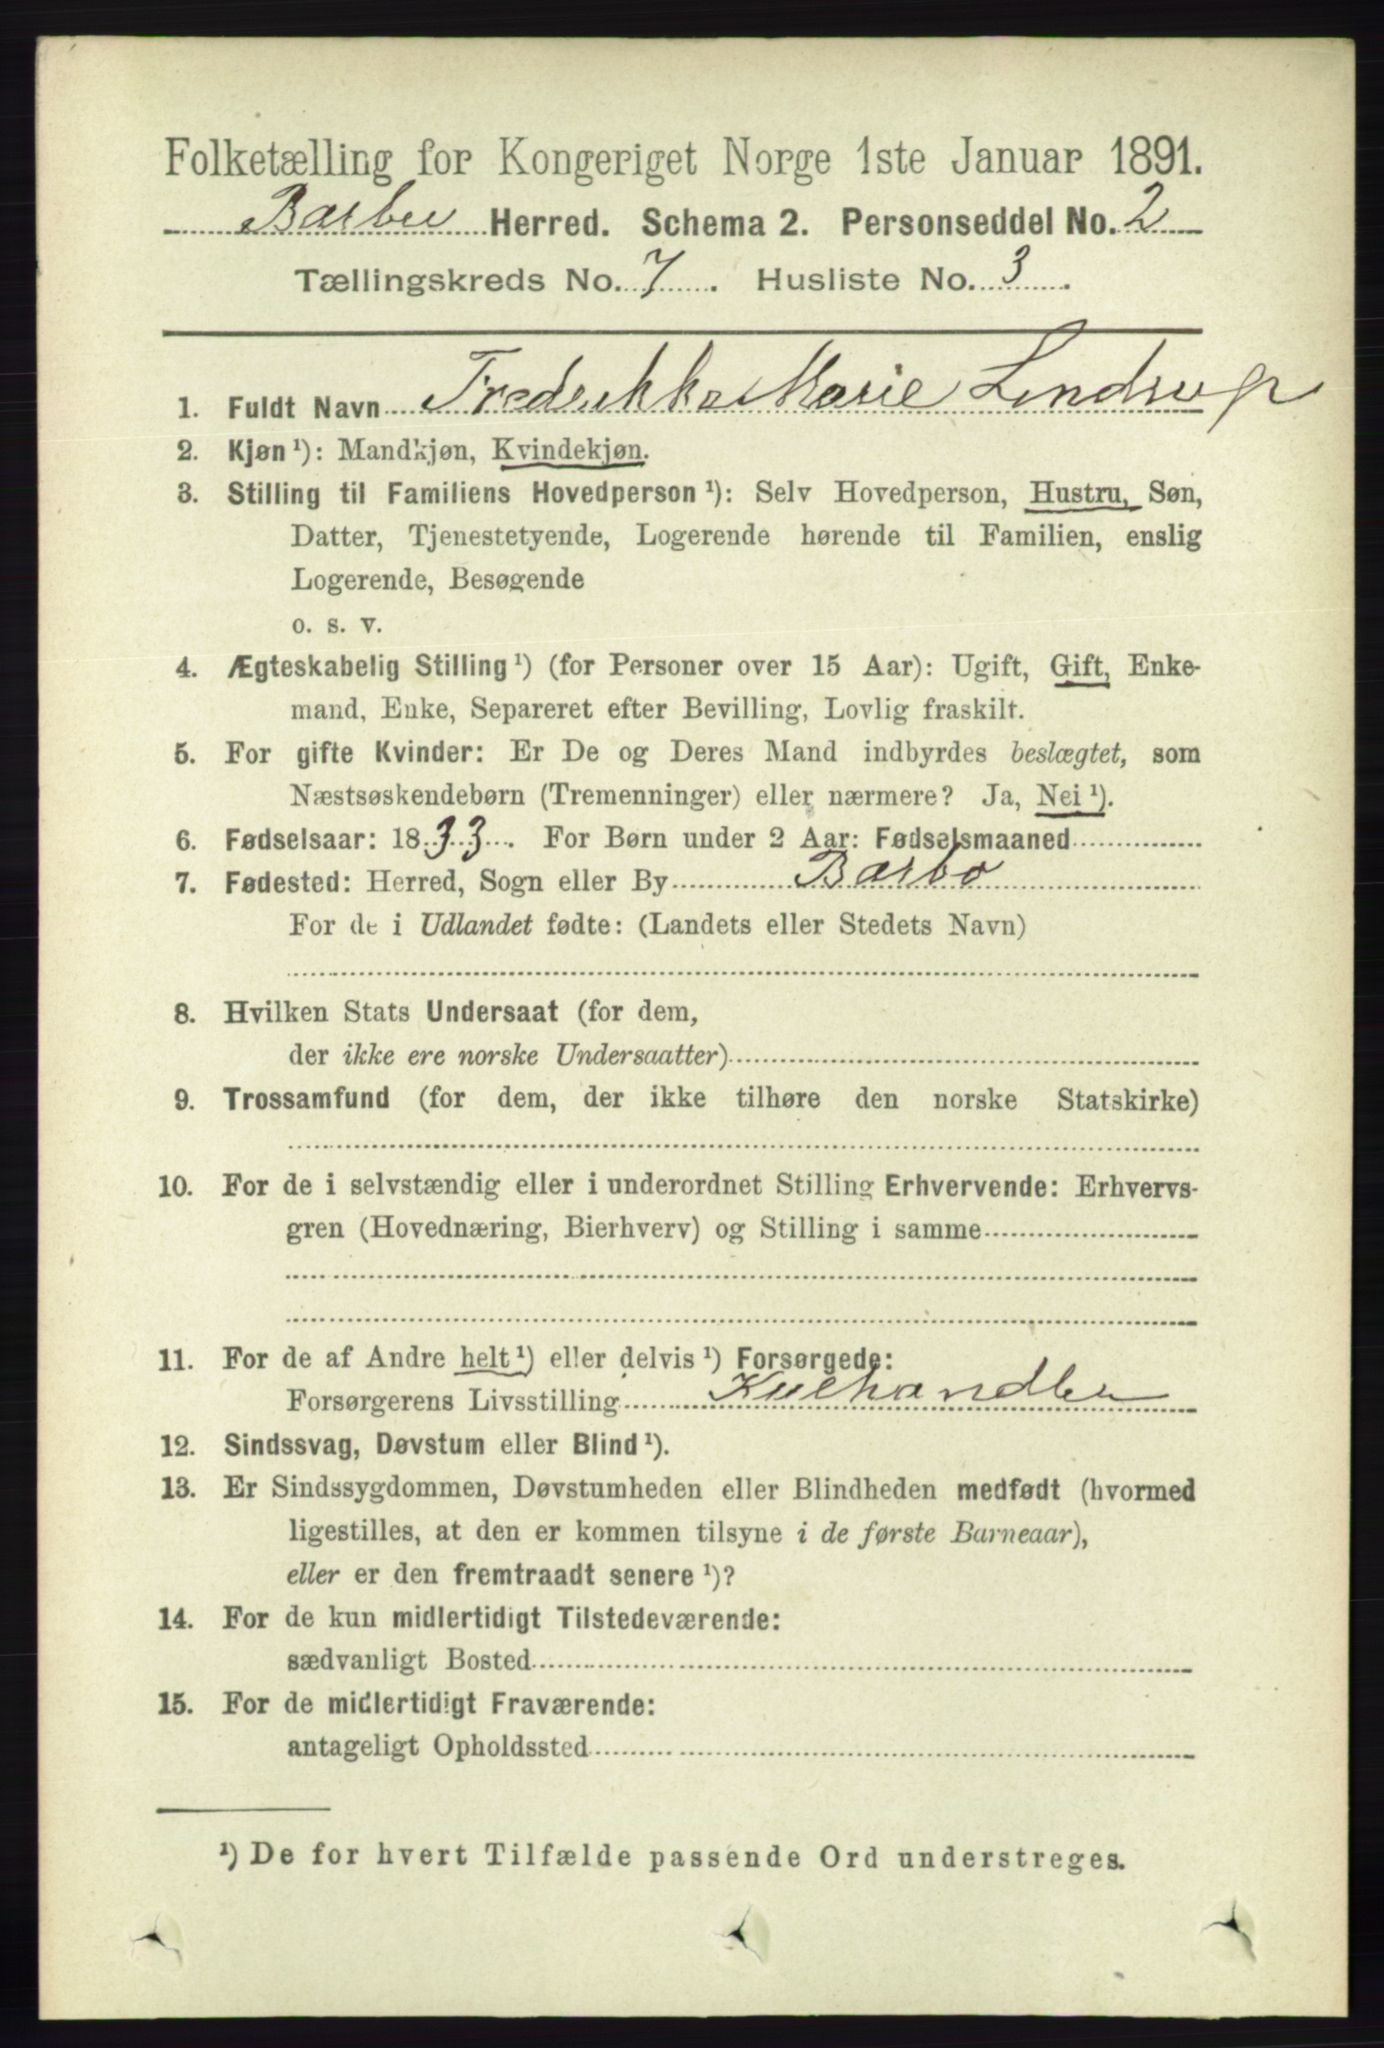 Folketælling for Kongeriget Norge 1ste Januar 1891.
Barbu Herred. Schema 2. Personseddel No. 2
Tællingskreds No. 7. Husliste No. 3.
1. Fuldt Navn Fredrikka Marie Lendrup
2. Kjøn ¹): Mandkjøn, Kvindekjøn.
3. Stilling til Familiens Hovedperson ¹): Selv Hovedperson, Hustru, Søn,
Datter, Tjenestetyende, Logerende hørende til Familien, enslig
Logerende, Besøgende
o. s. v.
4. Ægteskabelig Stilling ¹) (for Personer over 15 Aar): Ugift, Gift, Enke-
mand, Enke, Separeret efter Bevilling, Lovlig fraskilt.
5. For gifte Kvinder: Er De og Deres Mand indbyrdes beslægtet, som
Næstsøskendebørn (Tremenninger) eller nærmere? Ja, Nei ¹).
6. Fødselsaar: 1833. For Børn under 2 Aar: Fødselsmaaned
7. Fødested: Herred, Sogn eller By Barbo
For de i Udlandet fødte: (Landets eller Stedets Navn)
8. Hvilken Stats Undersaat (for dem,
der ikke ere norske Undersaatter)
9. Trossamfund (for dem, der ikke tilhøre den norske Statskirke)
10. For de i selvstændig eller i underordnet Stilling Erhvervende: Erhvervs-
gren (Hovednæring, Bierhverv) og Stilling i samme
11. For de af Andre helt ¹) eller delvis ¹) Forsørgede:
Forsørgerens Livsstilling Kulhandler
12. Sindssvag, Døvstum eller Blind ¹).
13. Er Sindssygdommen, Døvstumheden eller Blindheden medfødt (hvormed
ligestilles, at den er kommen tilsyne i de første Barneaar),
eller er den fremtraadt senere ¹)?
14. For de kun midlertidigt Tilstedeværende:
sædvanligt Bosted
15. For de midlertidigt Fraværende:
antageligt Opholdssted
¹) De for hvert Tilfælde passende Ord understreges.